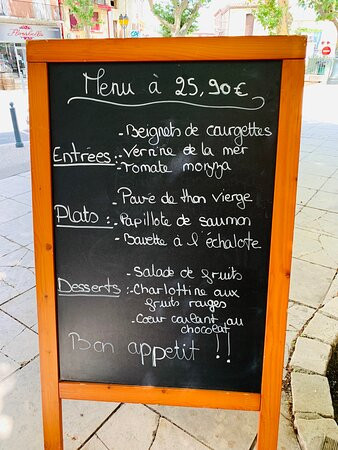 Menu à 25,90€
- Beignets de courgettes
Entrées :- Verrine de la mer
- Tomate mozza
- Pavé de thon vierge
Plats :- Papillote de saumon
- Bavette à l'échalote
- Salade de fruits
Desserts :- Charlottine aux
fruits rouges
- Cœur coulant au
chocolat
Bon appetit !!